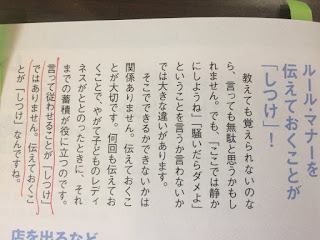 ルール・マナーを
伝えておくことが
「しつけ」！
教えても覚えられないのな
ら、言っても無駄と思うかもし
れません。でも、「ここでは静か
にしようね」「騒いだらダメよ」
ということを言うか言わないか
では大きな違いがあります。
そこでできるかできないかは
関係ありません。伝えておくこ
とが大切です。何回も伝えてお
くことで、やがて子どものレディ
ネスがととのったときに、それ
までの蓄積が役に立つのです。
言って従わせることが「しつけ」
ではありません。伝えておくこ
とが「しつけ」なんですね。
店を出るなど